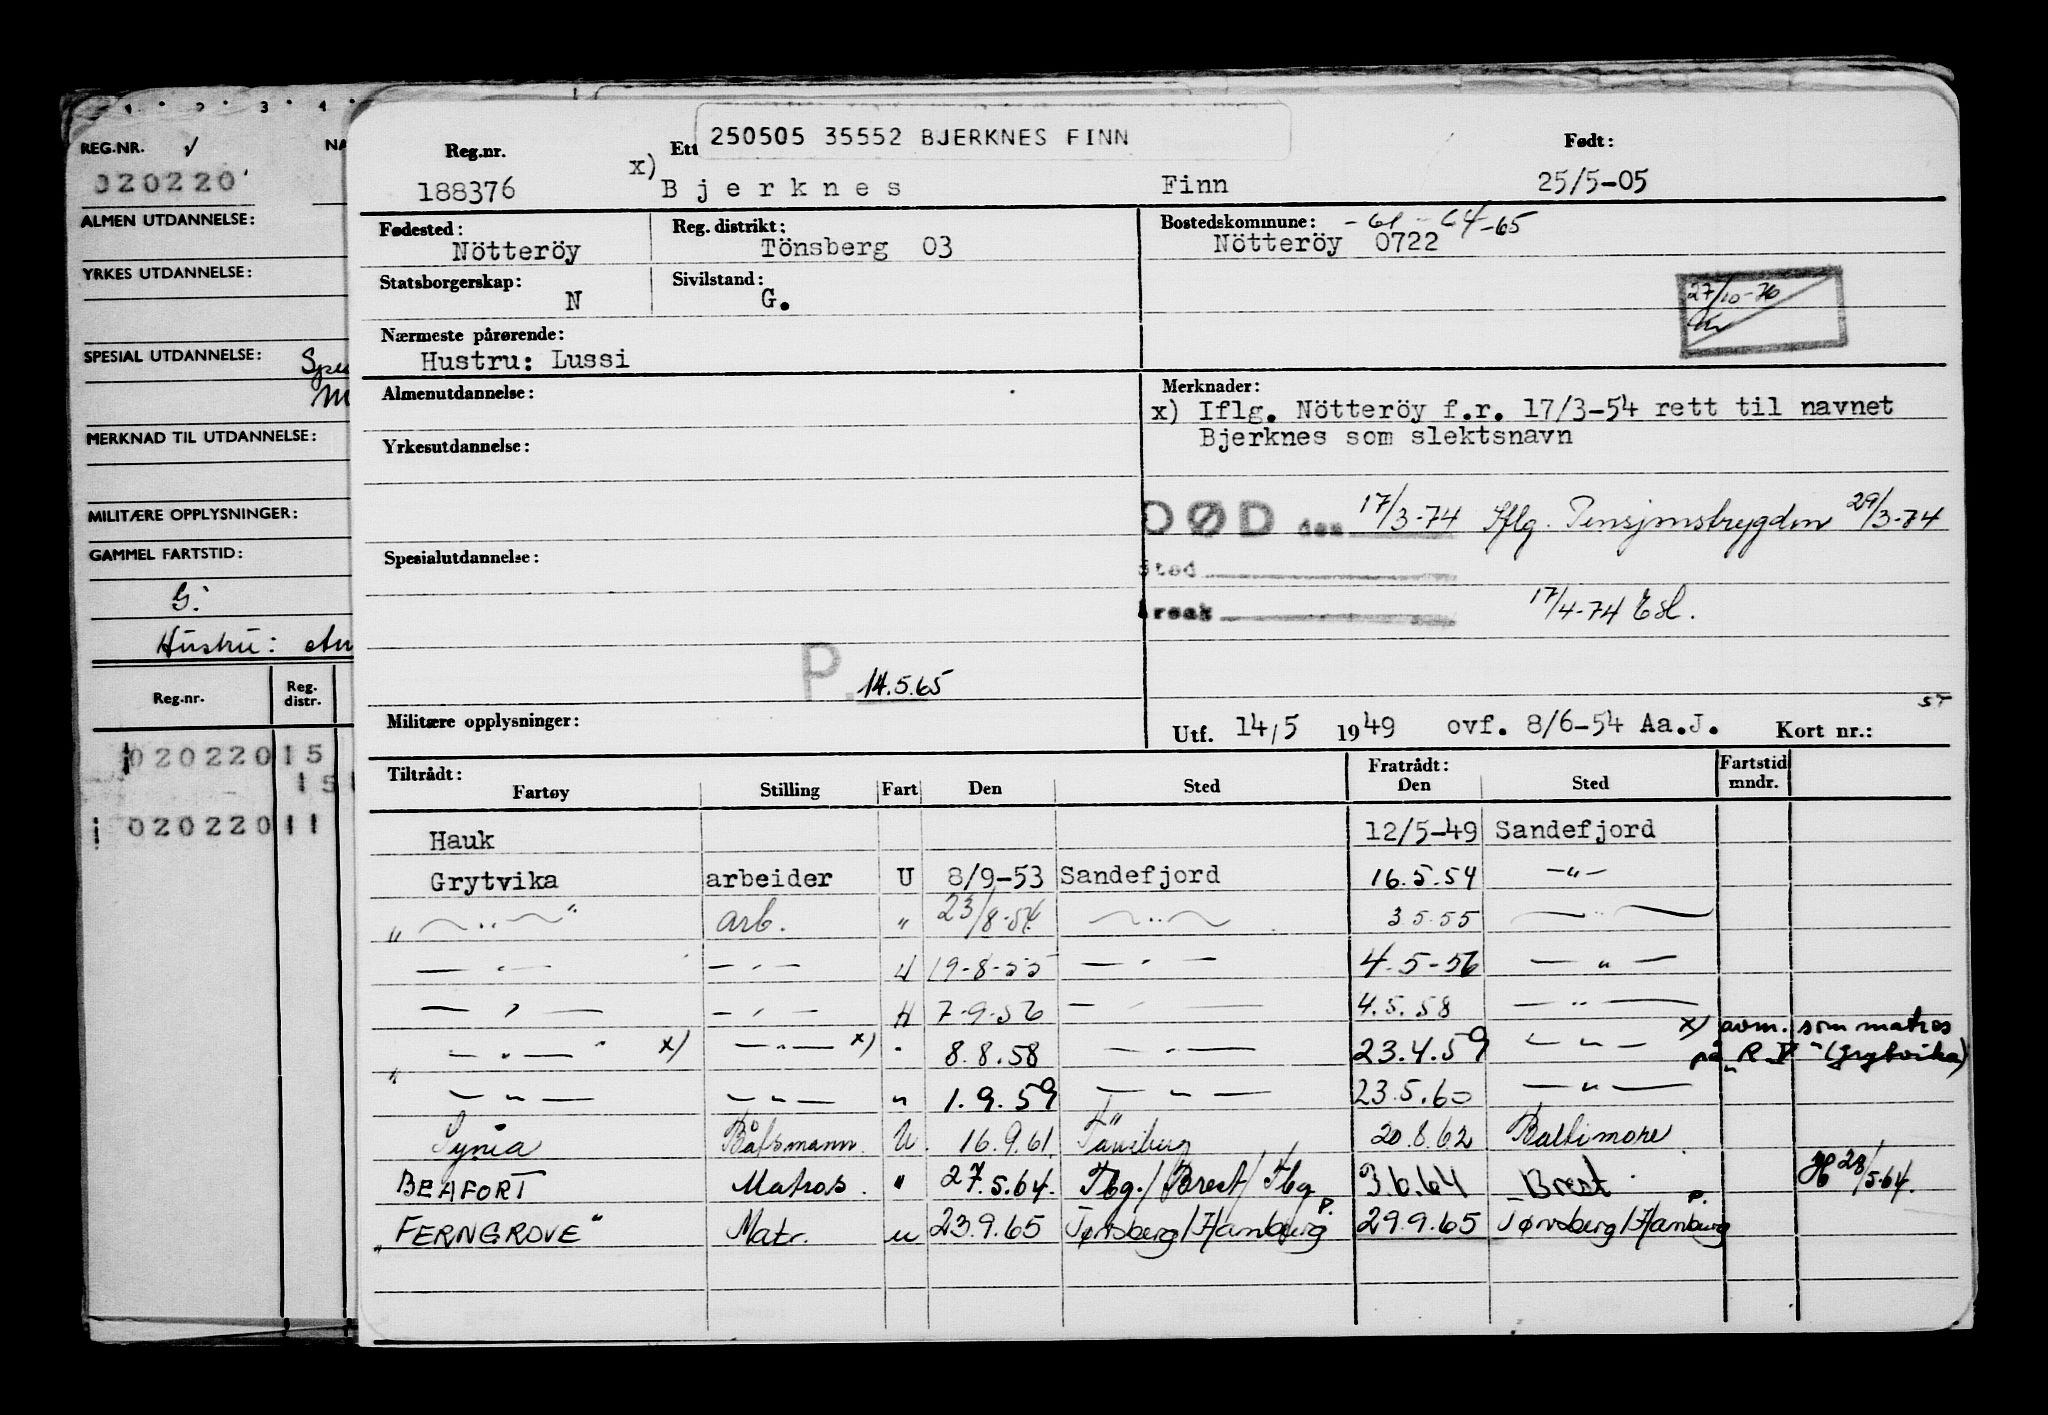 1 2 3 4
REG.NR. NA
020220
ALMEN UTDANNELSE:
YRKES UTDANNELSE:
SPESIAL UTDANNELSE:
MERKNAD TIL UTDANNELSE:
MILITÆRE OPPLYSNINGER:
GAMMEL FARTSTID:
G.
Hustru:
Reg.nr. Reg. distr.
020220 15
15
020220 11
250505 35552 BJERKNES FINN
Reg.nr. Ett Født:
188376 x) Bjerknes Finn 25/5-05
Fødested: Reg. distrikt: Bostedskommune: -61-64-65
Nötteröy Tönsberg 03 Nötteröy 0722
Statsborgerskap: Sivilstand:
N G.
27/10-76
Nærmeste pårørende:
Hustru: Lussi
Almenutdannelse: Merknader:
x) Iflg. Nötteröy f.r. 17/3-54 rett til navnet
Bjerknes som slektsnavn
Yrkesutdannelse:
DØD den 17/3-74 Iflg. Pensjonstrygden 29/3-74
Spesialutdannelse:
Sted
Årsak 17/4-74 Esl.
P. 14.5.65
Militære opplysninger: Utf. 14/5 1949 ovf. 8/6-54 Aa.J. Kort nr.:
Tiltrådt: Fratrådt: Fartstid
Fartøy Stilling Fart Den Sted Den Sted mndr.
Hauk 12/5-49 Sandefjord
Grytvika arbeider U 8/9-53 Sandefjord 16.5.54 -"-
" —"— " arb. " 23/8-54 —"— 3.5.55 —"—
—"— —"— U 19-8-55 —"— 4-5-56 —"—
—"— —"— H 7-9-56 —"— 4.5.58 —"—
" —"— " x) —"— x) " 8.8.58 —"— 23.4.59 —"— x) avm. som matros
på "R V" (Grytvika)
—"— —"— " 1.9.59 —"— 23.5.60 —"—
Synia Båtsmann U. 16.9.61. Tönsberg 20.8.62 Baltimore
BEAFORT Matros. " 27.5.64. Tbg./Brest/Tbg 3.6.64 Brest 28/5.64.
"FERNGROVE" Matr. u 23.9.65 Tønsberg/Hamburg P. 29.9.65 Tønsberg/Hamburg P.